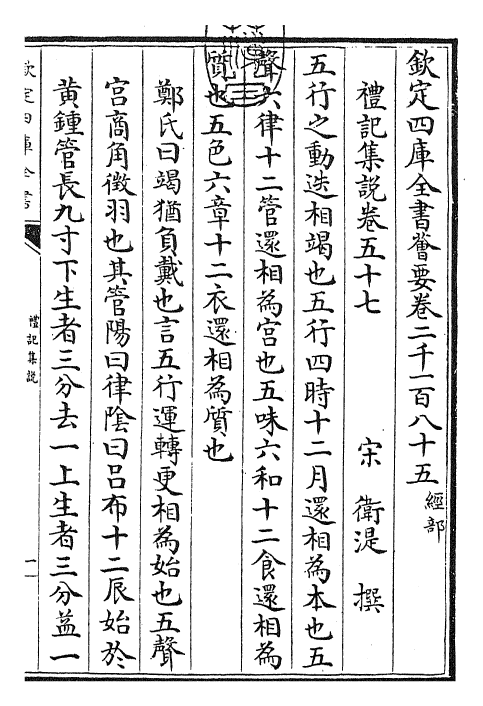 欽定四庫全書薈要卷二千一百八十五 經部
禮記集說卷五十七
宋 衛湜 撰
五行之動迭相竭也五行四時十二月還相為本也五
聲六律十二管還相為宮也五味六和十二食還相為
質也五色六章十二衣還相為質也
鄭氏曰竭猶負戴也言五行運轉更相為始也五聲
宮商角徴羽也其管陽曰律陰曰呂布十二辰始於
黃鍾管長九寸下生者三分去一上生者三分益一
欽定四庫全書
禮記集說
一